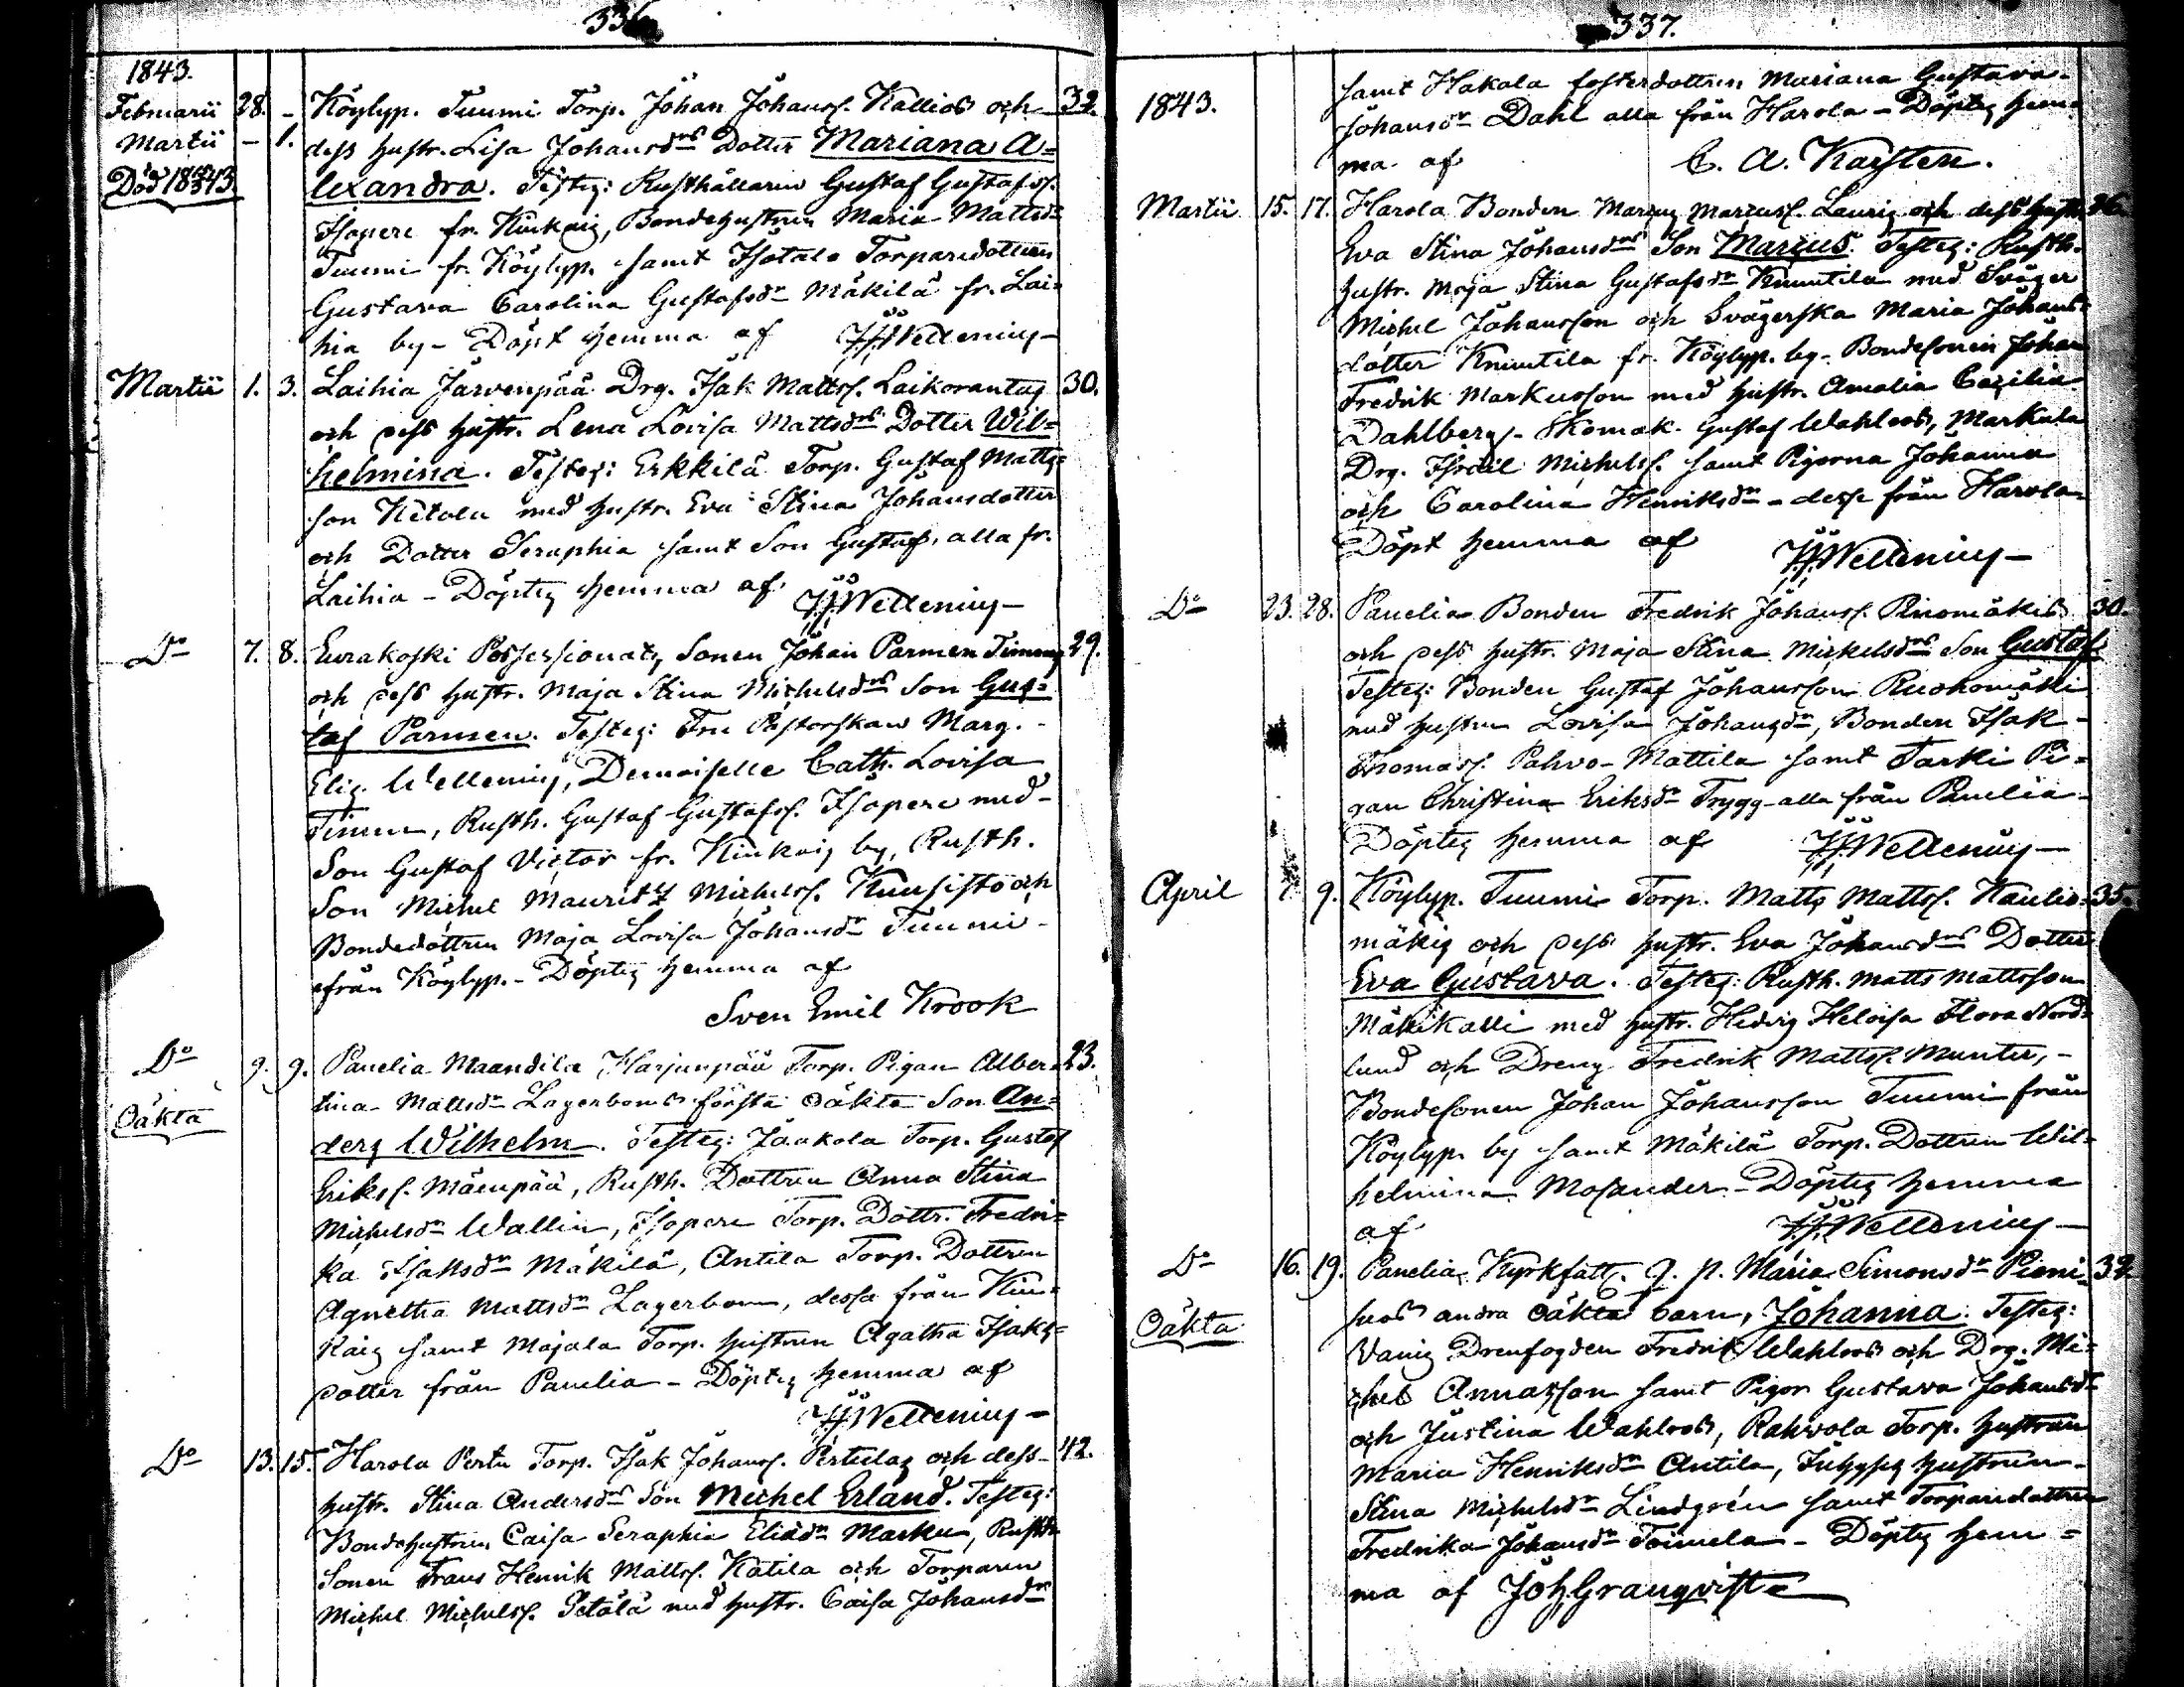 336
1843.
Februarii 28. - Köylyp. Tuumi Torp. Johan Johanss. Kallios och 32.
Martii - 1. dess hustr. Lisa Johansdrs Dotter Mariana A=
Död 18 13 lexandra. Testes: Rusthållaren Gustaf Gustafss.
Isopere fr. Kiukais, Bondehustrun Maria Mattsdr
Tuumi fr. Köylyp. samt Isotalo Torparedottren
Gustava Carolina Gustafsdr Mäkilä fr. Lai=
hia by - Döpt hemma af JJWellenius -
Martii 1. 3. Laihia Järvenpää Drg. Isak Mattss. Laikorantas 30.
och dess hustr. Lena Lovisa Mattsdrs Dotter Wil=
helmina. Testes: Erkkilä Torp. Gustaf Matts=
son Ketola med hustr. Eva Stina Johansdotter
och Dotter Seraphia samt Son Gustaf, alla fr.
Laihia - Döptes hemma af JJWellenius -
Do 7. 8. Eurakoski Possessionats Sonen Johan Parmen Timms 29.
och dess hustr. Maja Stina Michelsdrs Son Gus=
taf Parmen. Testes: Fru Pastorskan Marg. -
Elis. Wellenius, Demoiselle Cath. Lovisa
Timm, Rusth. Gustaf Gustafss. Isopere med -
Son Gustaf Victor fr. Kiukais by, Rusth.
Son Michel Maurits Michelss. Kuusisto och
Bondedottren Maja Lovisa Johansdr Tuumi -
från Köylyp. - Döptes hemma af
Sven Emil Krook
Do 9. 9. Panelia Maandila Harjunpää Torp. Pigan Alber= 23.
Oäkta tina Mattsdr Lagerboms första oäkta Son An=
ders Wilhelm. Testes: Jaakola Torp. Gustaf
Erikss. Mäenpää, Rusth. Dottren Anna Stina
Michelsdr Wallin, Isopere Torp. Dottr. Fredri=
ka Isaksdr Mäkilä, Antila Torp. Dottren
Agnetha Mattsdr Lagerbom, dessa från Kiu=
kais samt Majala Torp. hustrun Agatha Isaks=
dotter från Panelia - Döptes hemma af
JJWellenius -
Do 13. 15. Harola Pertu Torp. Isak Johanss. Pertulas och dess 42.
hustr. Stina Andersdrs Son Michel Erland. Testes:
Bondehustrun Caisa Seraphia Eliædr Marku, Rusth.
Sonen Frans Henrik Mattss. Katila och Torparen
Michel Michelss. Petälä med hustr. Caisa Johansdr
337.
1843. samt Hakala fosterdottren Mariana Gustava
Johansdr Dahl alla från Harola - Döptes hem=
ma af C. A. Karsten.
Martii 15. 17. Harola Bonden Marcus Marcuss. Lauris och dess hustr. 26.
Eva Stina Johansdrs Son Marcus. Testes: Rusth.
hustr. Maja Stina Gustafsdr Knuutila med Svåger
Michel Johansson och Svägerska Maria Johans=
dotter Knuutila fr. Köylyp. by - Bondesonen Johan
Fredrik Markusson med hustr. Amalia Cecilia
Dahlberg - Skomak. Gustaf Wahlroos, Markula
Drg. Israel Michelss. samt Pigorna Johanna
och Carolina Henriksdr - desse från Harola
Döpt hemma af JJWellenius -
Do 23. 28. Panelia Bonden Fredrik Johanss. Pinomäkis 30.
och dess hustr. Maja Stina Michelsdrs Son Gustaf
Testes: Bonden Gustaf Johansson Ruohomäki
med hustrun Lovisa Johansdr, Bonden Isak -
Thomass. Pahvo-Mattila samt Tarki Pi=
gan Christina Eriksdr Trygg - alla från Panelia -
Döptes hemma af JJWellenius -
April 7. 9. Köylyp. Tuumi Torp. Matts Mattss. Kaulio= 35.
mäkis och dess hustr. Eva Johansdrs Dotter
Eva Gustava. Testes: Rusth. Matts Mattsson
Mäkikalli med hustr. Hedvig Heloisa Flora Nord=
lund och Dreng Fredrik Mattss. Munter, -
Bondesonen Johan Johansson Tuumi från
Köylyp. by samt Mäkilä Torp. Dottren Wil=
helmina Mosander - Döptes hemma
af JJWellenius -
Do 16. 19. Panelia Kyrkfatt. Q. P. Maria Simonsdr Pieni 32
Oäkta hus andra oäkta barn, Johanna. Testes:
Vanis Drenfogden Fredrik Wahlroos och Drg. Mi=
chel Annasson samt Pigor Gustava Johansdr
och Justina Wahlroos, Rahvola Torp. hustrun
Maria Henriksdr Antila, Inhyses hustrun
Stina Michelsdr Lindgrén samt Torparedottren
Fredrika Johansdr Toimela - Döptes hem=
ma af Joh Granqvist